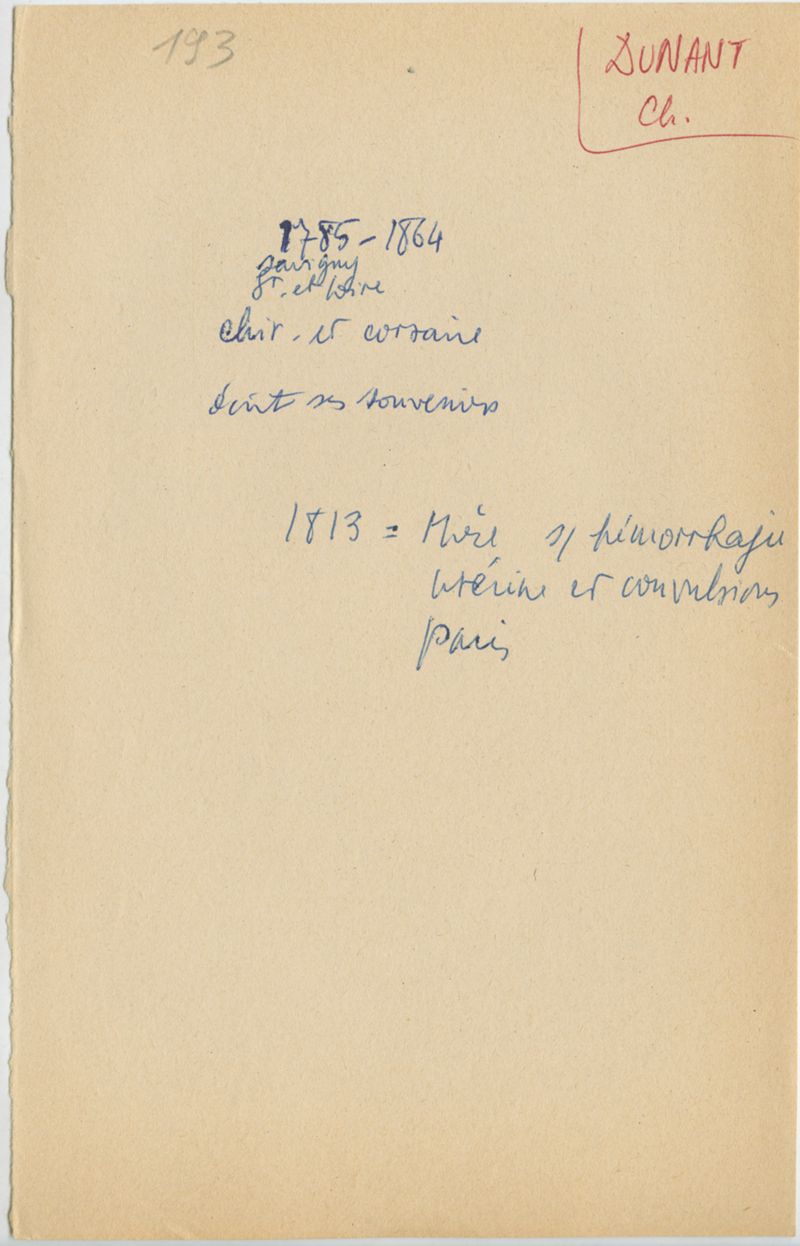 193
DUNANT
Ch.
1785-1864
Savigny
et Loire
chir. et corsaire
écrit ses souvenirs
1813 = Thèse s/ hémorrhagie
utérine et convulsions
Paris